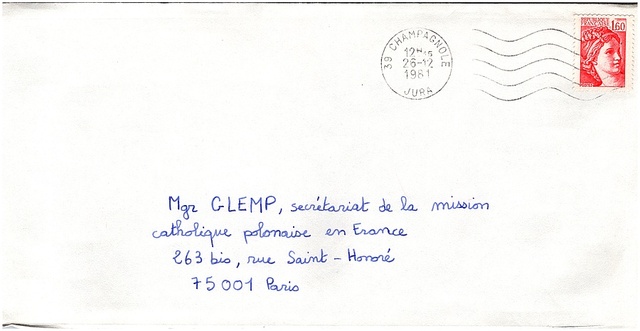 REPUBLIQUE
FRANÇAISE
1,60
39 CHAMPAGNOLE
12H15
26-12
1981
JURA
Mgr GLEMP, secrétariat de la mission
catholique polonaise en France
263 bis, rue Saint-Honoré
75001 Paris